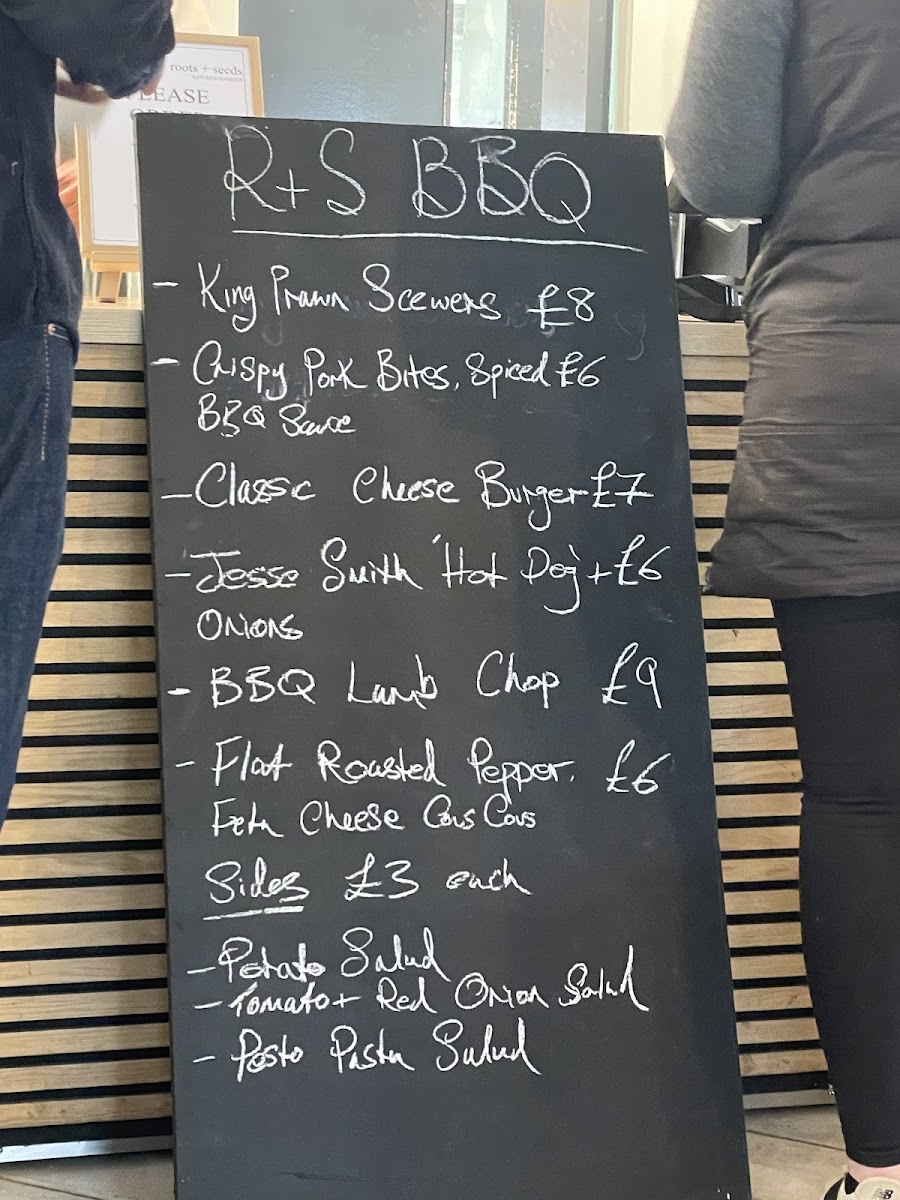 roots + seeds
KITCHEN GARDEN
PLEASE
R+S BBQ
- King Prawn Scewers £8
- Crispy Pork Bites, Spiced £6
BBQ Sauce
- Classic Cheese Burger £7
- Jesse Smith 'Hot Dog' + £6
Onions
- BBQ Lamb Chop £9
- Flat Roasted Pepper. £6
Feta Cheese Cous Cous
Sides £3 each
- Potato Salad
- Tomato + Red Onion Salad
- Pesto Pasta Salad